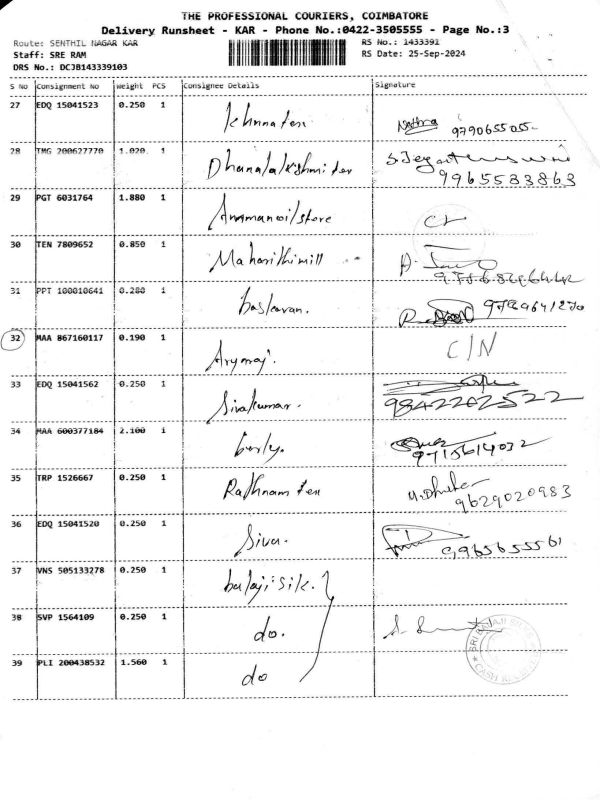 THE PROFESSIONAL COURIERS, COIMBATORE
Delivery Runsheet - KAR - Phone No.:0422-3505555 - Page No.:3
Route: SENTHIL NAGAR KAR RS No.: 1433391
Staff: SRE RAM RS Date: 25-Sep-2024
DRS No.: DCJB143339103
S No Consignment No Weight PCS Consignee Details Signature
27 EDQ 15041523 0.250 1
9790655055
28 TMG 200627770 1.020 1 Dhanalakshmi tex
9965533863
29 PGT 6031764 1.880 1
30 TEN 7809652 0.850 1
31 PPT 100810641 0.280 1 baskaran.
32 MAA 867160117 0.190 1 C/N
33 EDQ 15041562 0.250 1 Sivakumar.
9842202522
34 MAA 600377184 2.100 1
9715614032
35 TRP 1526667 0.250 1 Rathnam tex
9629020983
36 EDQ 15041520 0.250 1 Siva. 9965655561
37 VNS 505133278 0.250 1 balaji silk.
38 SVP 1564109 0.250 1 do.
39 PLI 200438532 1.560 1 do